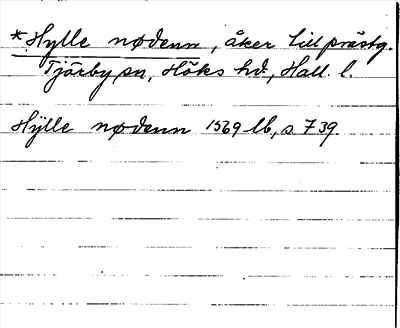 *Hylle nødenn, åker till prästg.
Tjärby sn, Höks hd., Hall. l.
Hÿlle nødenn 1569 lb, s. 739.